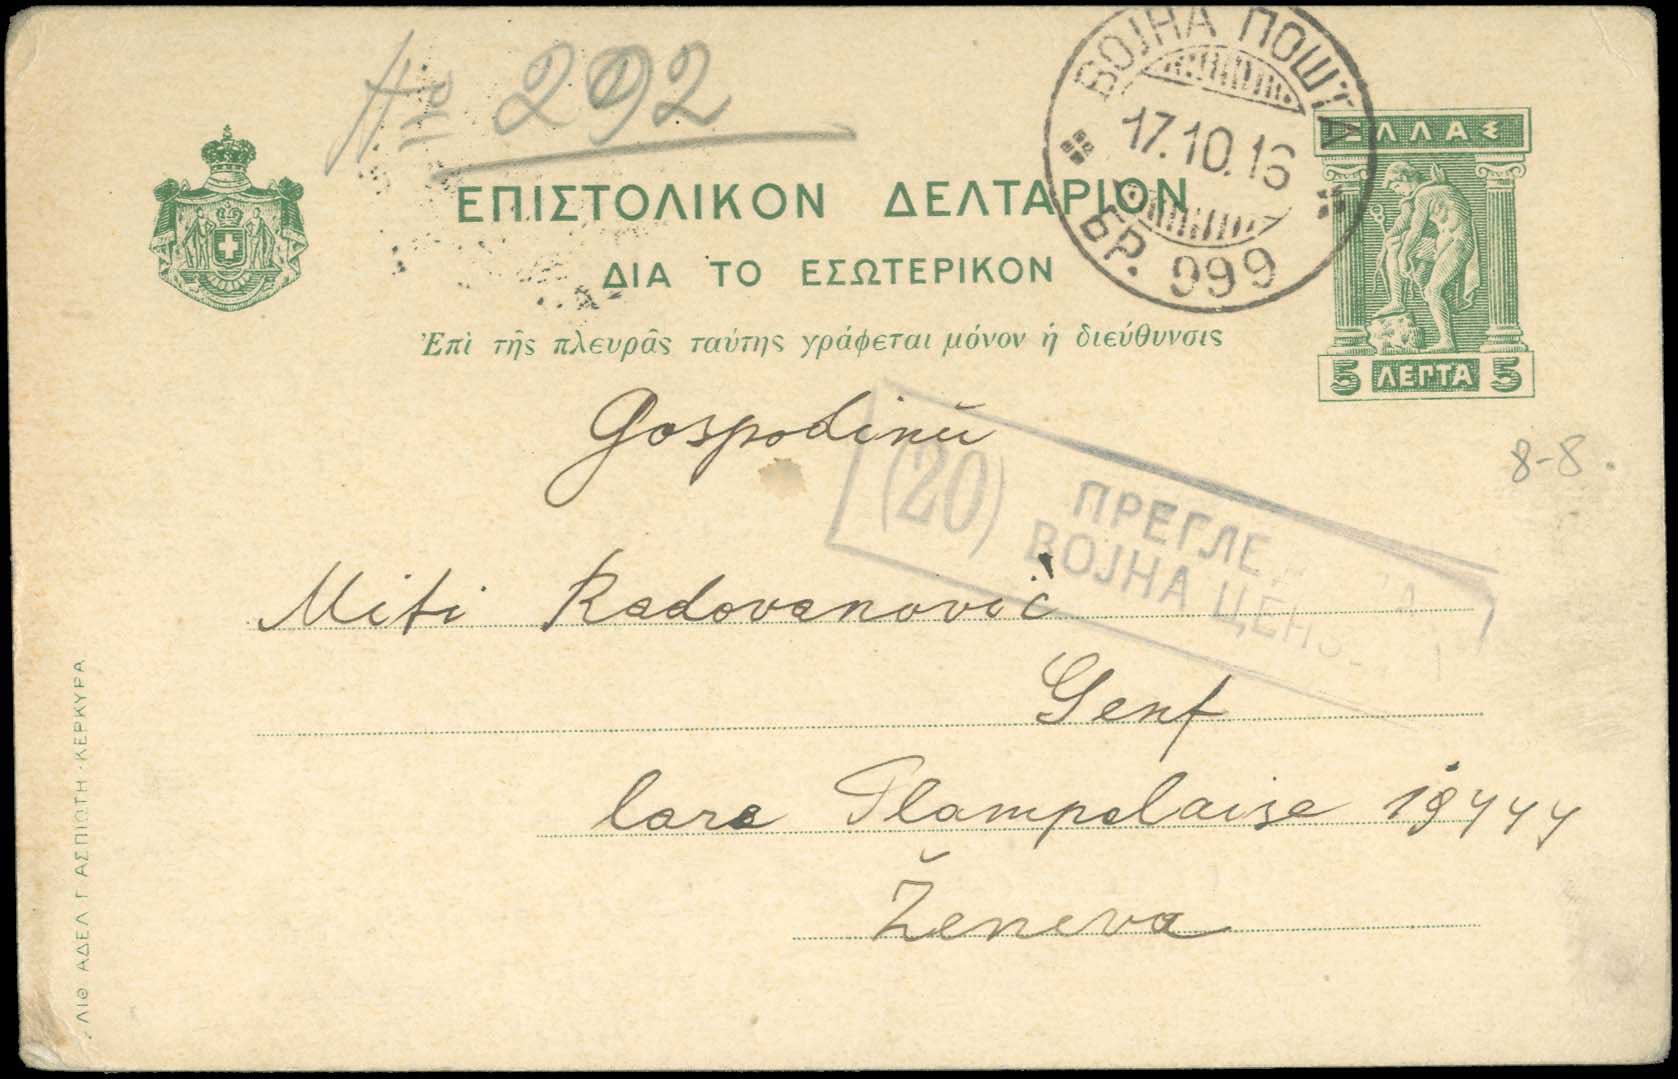 No 292
ΒΟЈНА ПОШТА
17.10.16
БР. 999
ΕΛΛΑΣ
ΕΠΙΣΤΟΛΙΚΟΝ ΔΕΛΤΑΡΙΟΝ
ΔΙΑ ΤΟ ΕΣΩΤΕΡΙΚΟΝ
Ἐπὶ τῆς πλευρᾶς ταύτης γράφεται μόνον ἡ διεύθυνσις
5 ΛΕΠΤΑ 5
Gospodinu
8-8.
(20) ПРЕГЛЕ
ВОЈНА
Miti Radovanović
Genf
Ženeva
ΛΙΘ ΑΔΕΛ Γ ΑΣΠΙΩΤΗ·ΚΕΡΚΥΡΑ